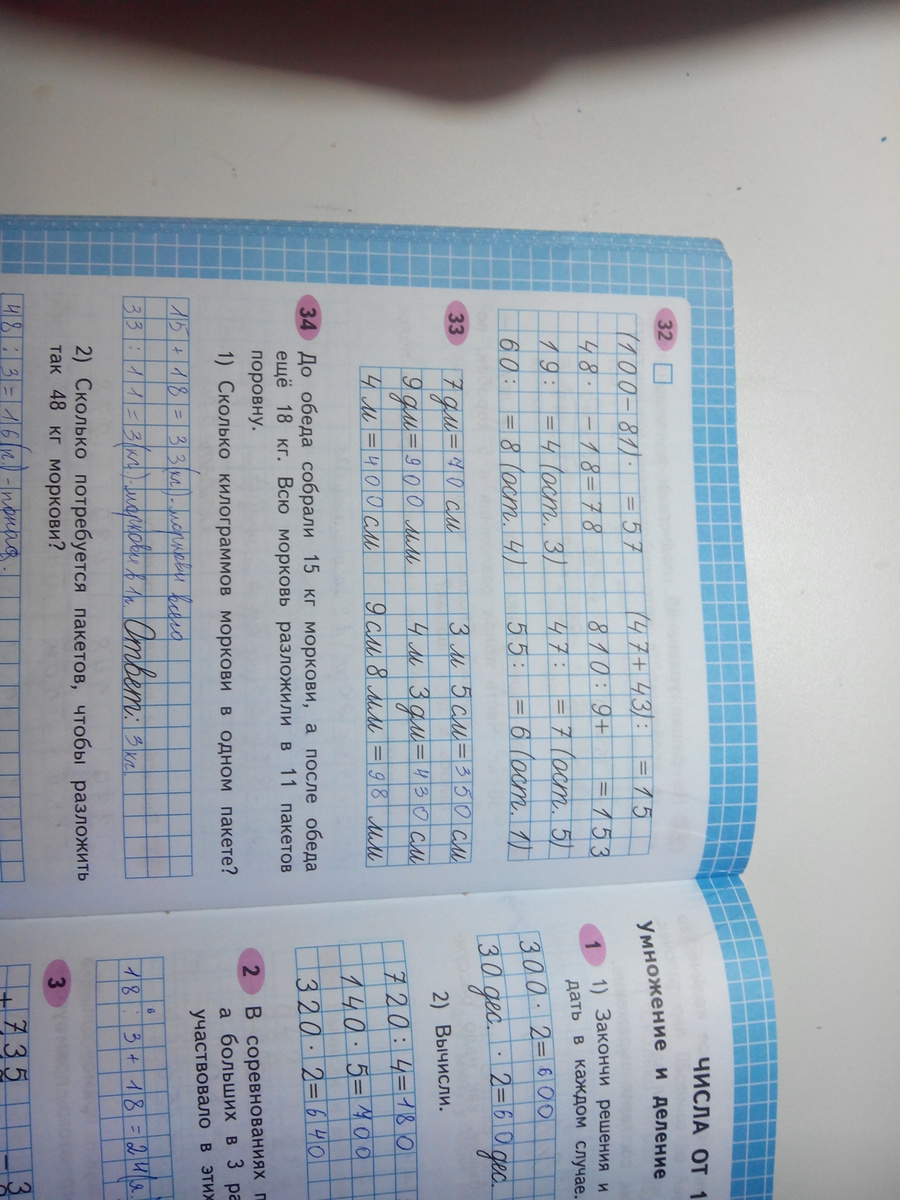 32
(100-81)· =57 (47+43): =15
48· -18=78 810:9+ =153
19: =4(ост. 3) 47: =7(ост. 5)
60: =8(ост. 4) 55: =6(ост. 1)
33
7 дм=70 см 3 м 5 см=350 см
9 дм=900 мм 4 м 3 дм=430 см
4 м=400 см 9 см 8 мм=98 мм
34 До обеда собрали 15 кг моркови, а после обеда
ещё 18 кг. Всю морковь разложили в 11 пакетов
поровну.
1) Сколько килограммов моркови в одном пакете?
15+18=33(кг). моркови всего
33:11=3(кг)-моркови в 1п. Ответ: 3 кг
2) Сколько потребуется пакетов, чтобы разложить
так 48 кг моркови?
48:3=16(п)-
ЧИСЛА ОТ 1
Умножение и деление
1 1) Закончи решения и
дать в каждом случае.
300·2=600
30 дес. ·2=60 дес.
2) Вычисли.
720:4=180
140·5=700
320·2=640
2 В соревнованиях
а больших в 3
участвовало в
18:3+18=24
3
+735 -3